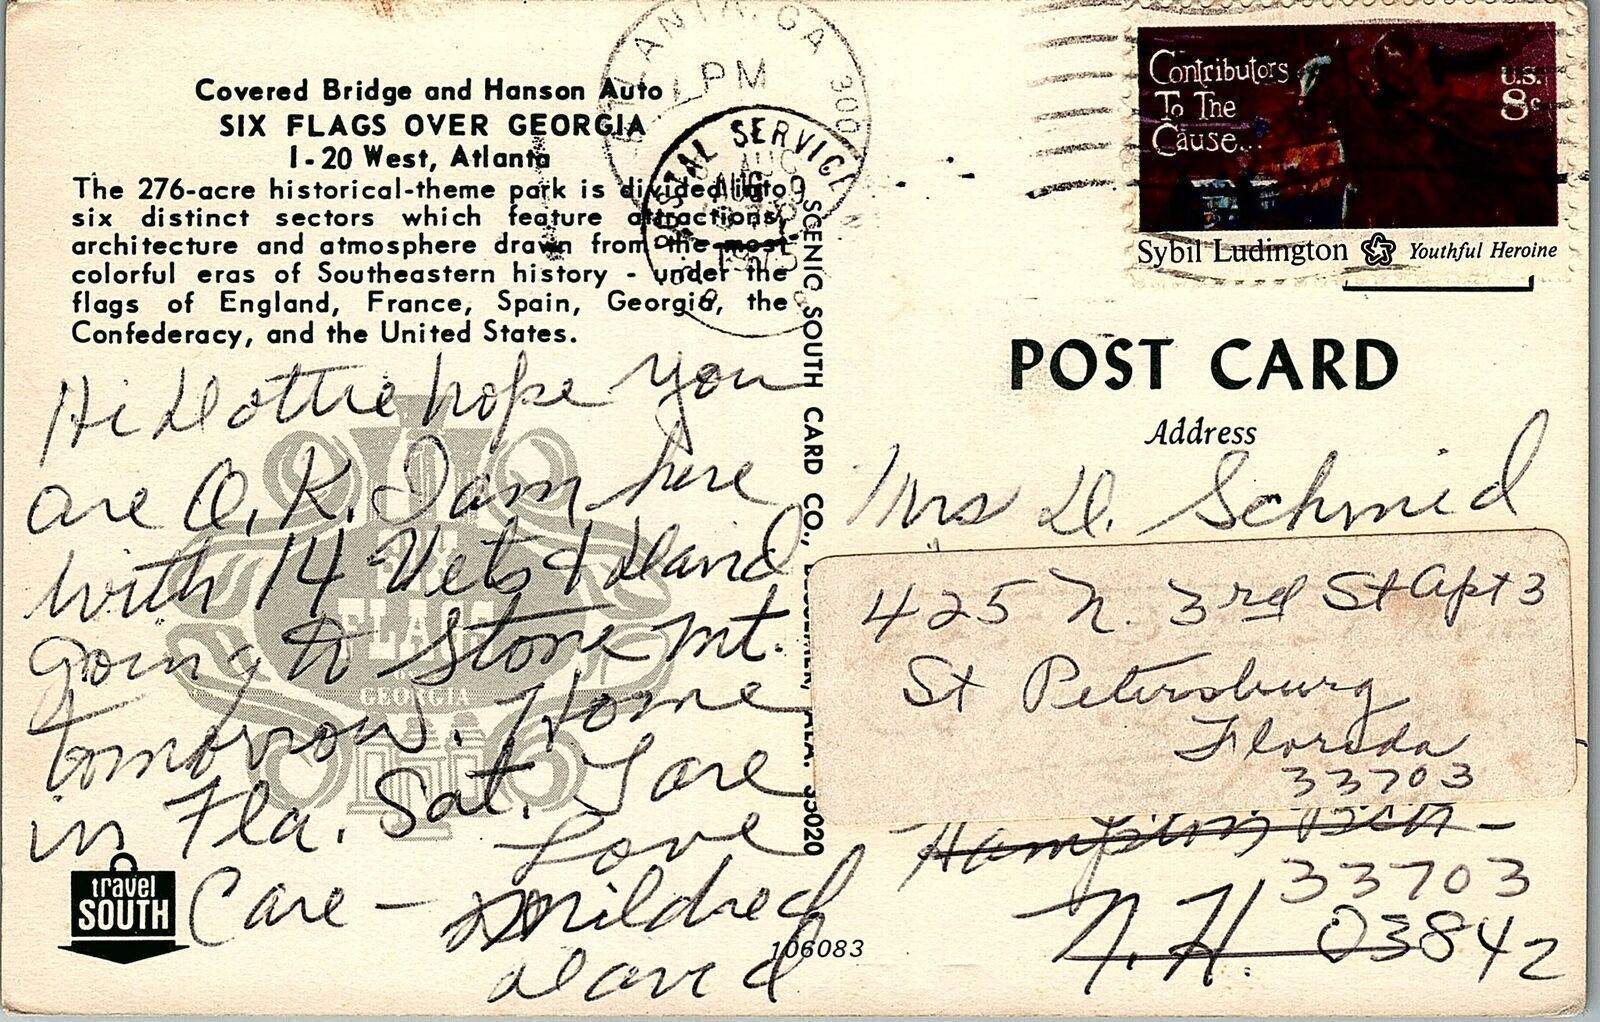 Covered Bridge and Hanson Auto
SIX FLAGS OVER GEORGIA
I-20 West, Atlanta
The 276-acre historical-theme park is divided into
six distinct sectors which feature attractions,
architecture and atmosphere drawn from the most
colorful eras of Southeastern history - under the
flags of England, France, Spain, Georgia, the
Confederacy, and the United States.
Hi Dottie hope you
are O.K. I am here
with 14 Vets & David
going to Stone Mt.
tomorrow. Home
in Fla. Sat. Take
Care - Love
Mildred
David
FLAGS
GEORGIA
travel
SOUTH
106083
SCENIC SOUTH CARD CO., BESSEMER, ALA. 35020
ATLANTA, GA 300
PM
POSTAL SERVICE
AUG
1975
Contributors
To The
Cause...
U.S.
8c
Sybil Ludington Youthful Heroine
POST CARD
Address
Mrs D. Schmid
425 N. 3rd St Apt 3
St Petersburg
Florida
33703
Hampton
33703
N.H. 03842